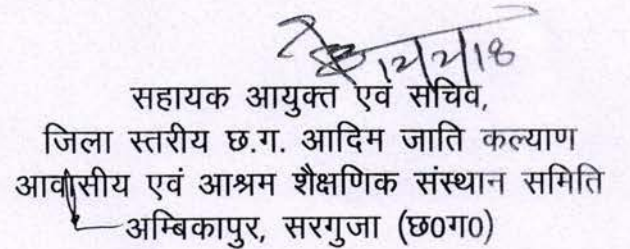 12/2/18
सहायक आयुक्त एवं सचिव,
जिला स्तरीय छ.ग. आदिम जाति कल्याण
आवासीय एवं आश्रम शैक्षणिक संस्थान समिति
अम्बिकापुर, सरगुजा (छ0ग0)